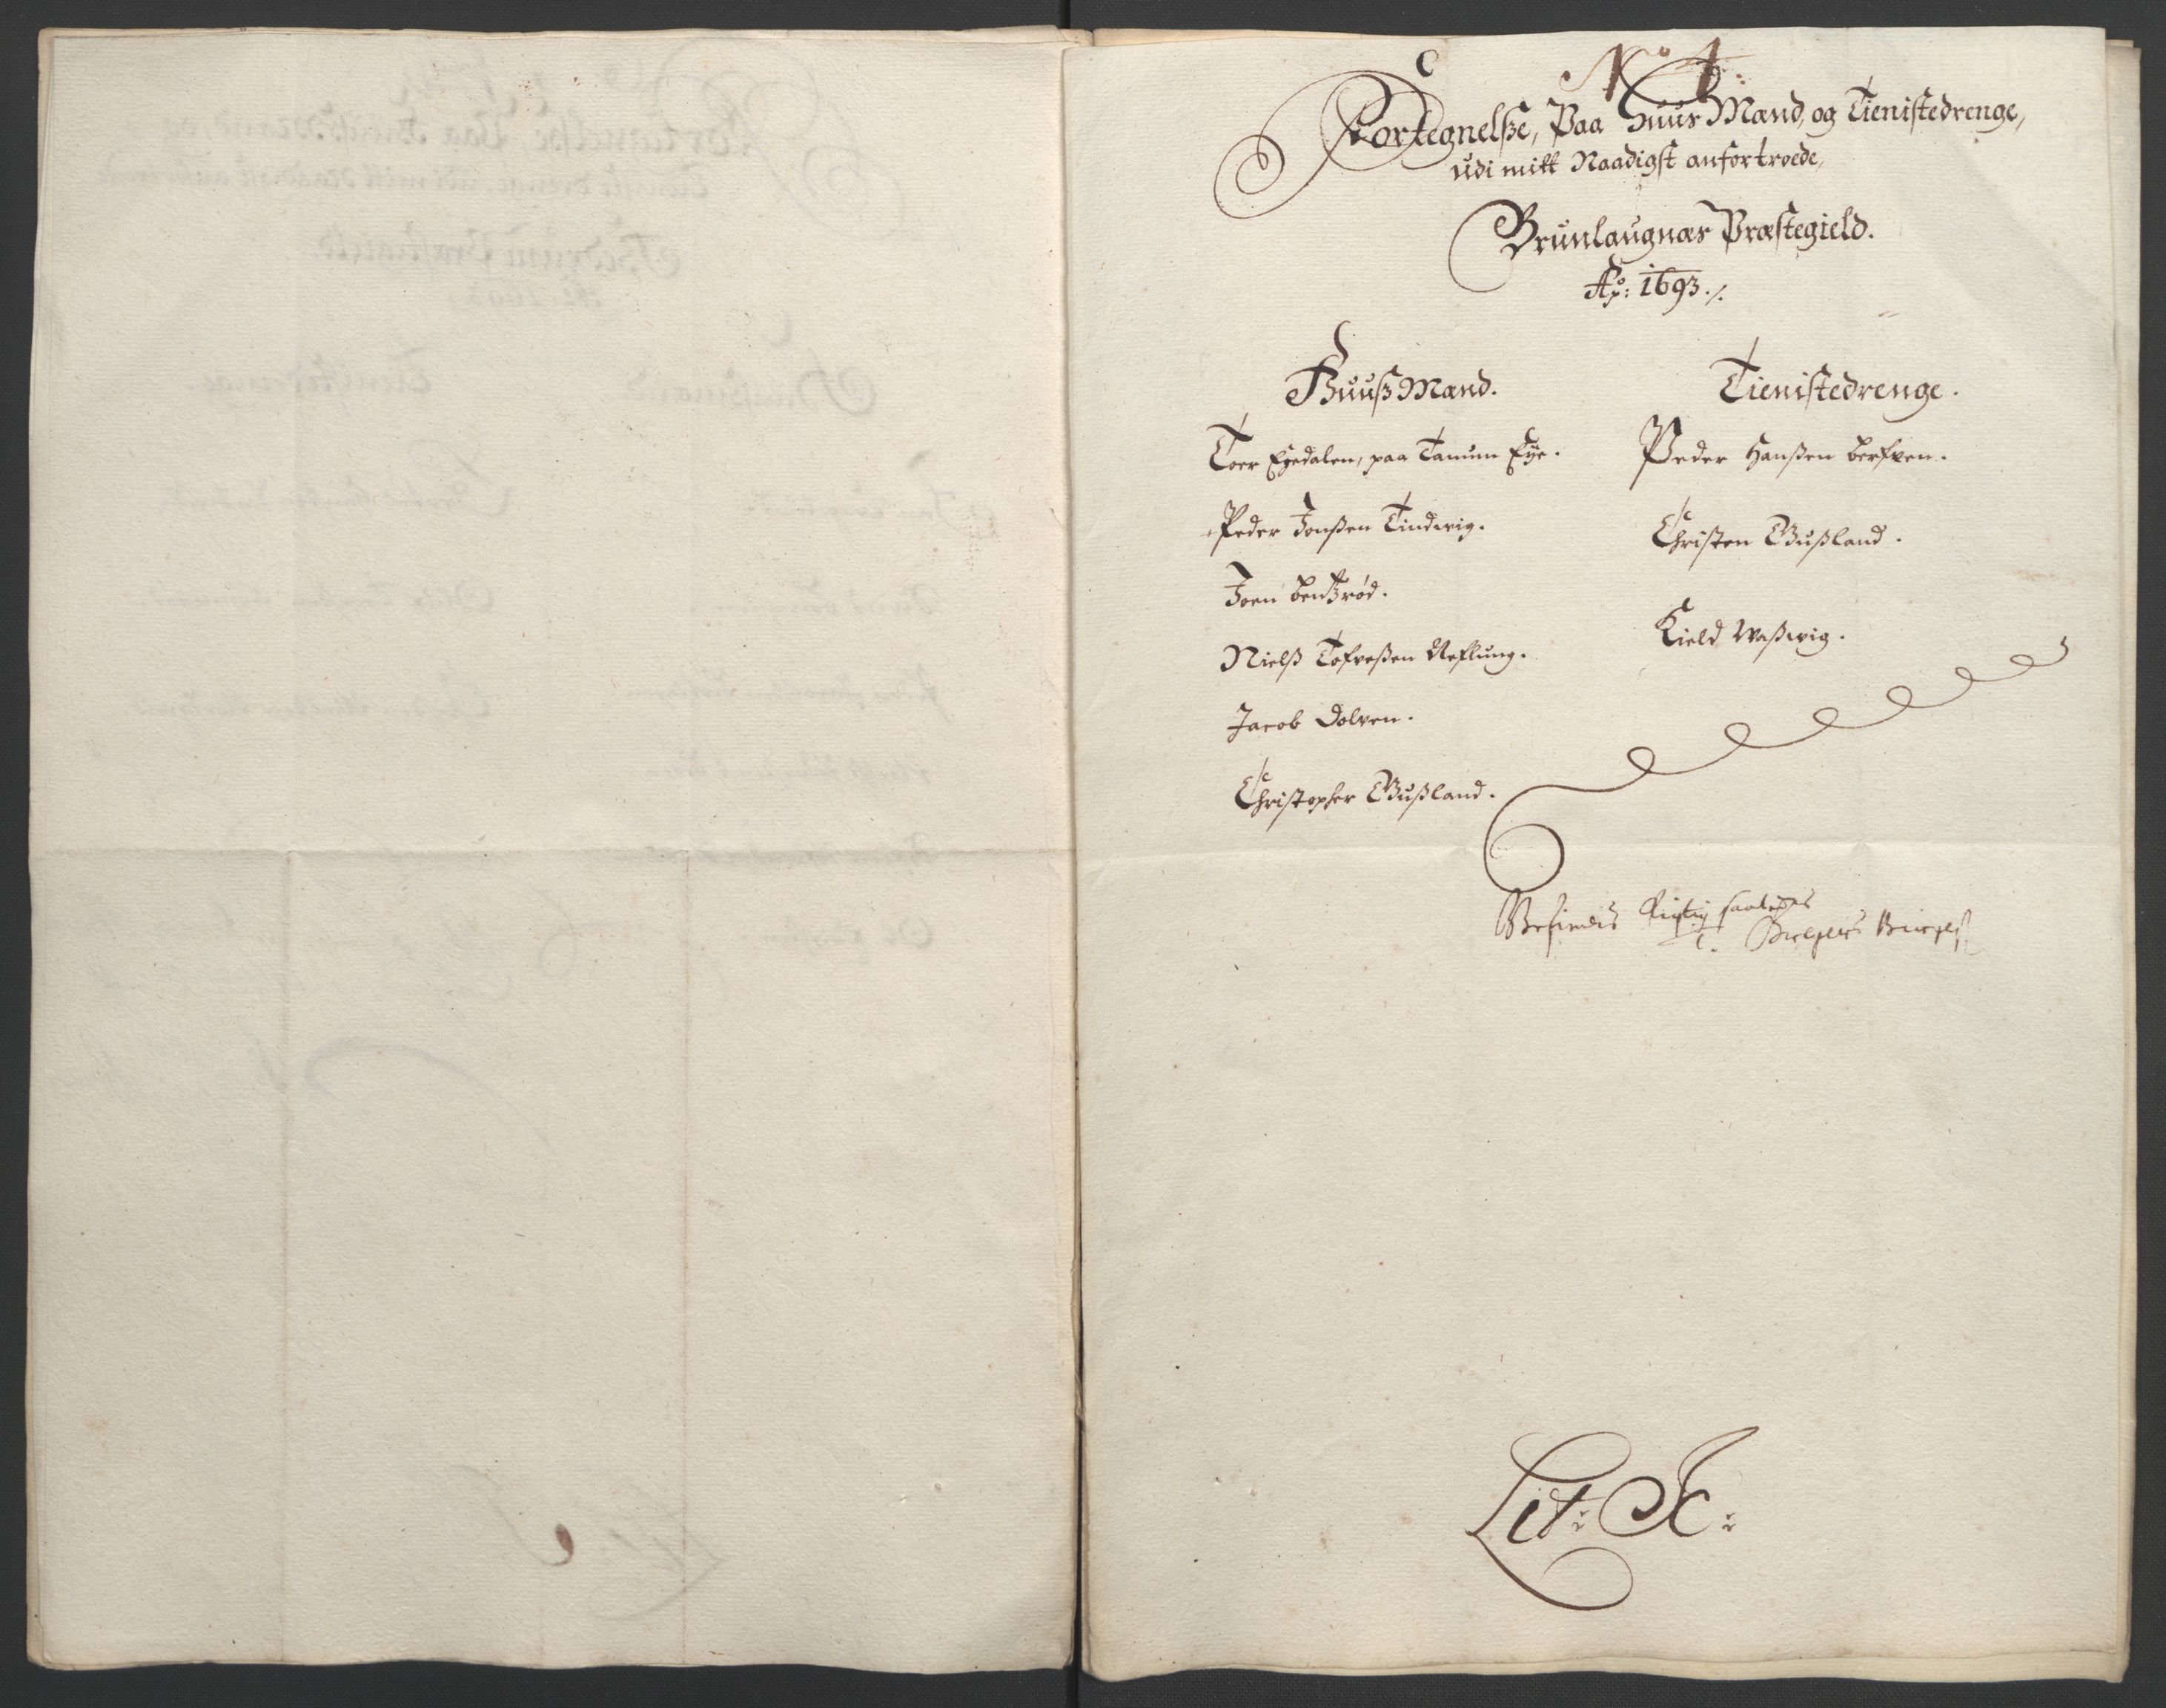 No 4:
Fortegnelsse, Paa Huus Mænd, og Tienistedrenge,
udi mitt Naadigst anfortroede,
Brunlaugnæs Præstegield.
Ao: 1693./.
Huuss Mænd.
Toer Egedalen, paa Tanum Eye.
Peder Jonssen Tindvig.
Joen bentzrød.
Nielss Tofvessen Refling.
Jacob Dolven.
Christopher Bussland.
Tienistedrenge.
Peder Hanssen berfven.
Christen Bussland.
Kield Wasswig.
Befindis Rigtig saaledes
Lit: